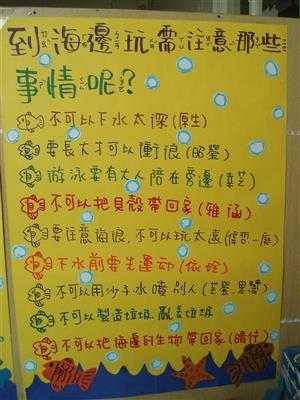 到海邊玩需注意那些
事情呢?
不可以下水太深(厚生)
要長大才可以衝浪(昭瑩)
游泳要有大人陪在旁邊(幸芝)
不可以把貝殼帶回家(雅涵)
要注意海浪,不可以玩太遠
下水前要先運動
不可以用沙子水噴別人
不可以製造垃圾 亂丟垃圾
不可以把海邊的生物帶回家